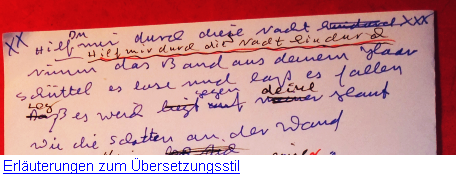 xx Hilf mir durch diese Nacht xxx
Hilf mir durch die Nacht hindurch
nimm das Band aus deinem Haar
schüttel es lose und laß es fallen
Leg es weich gegen deine Haut
wie die Schatten an der Wand
Erläuterungen zum Übersetzungsstil